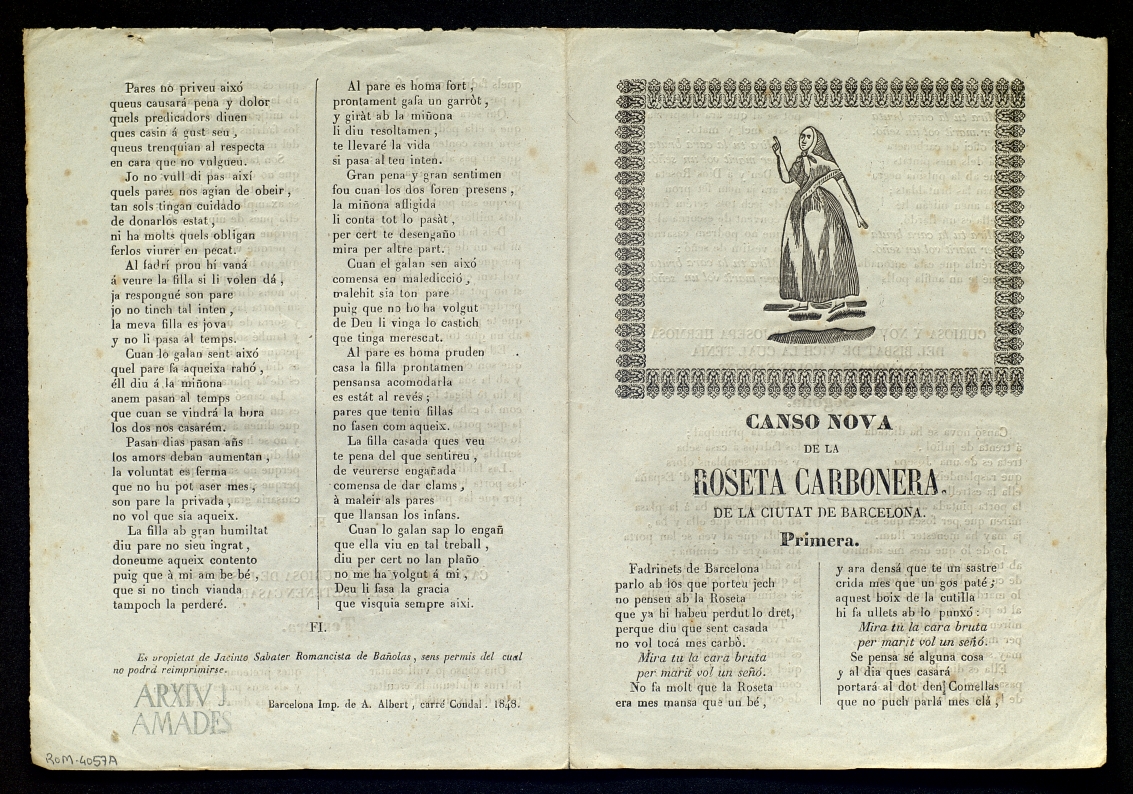 Pares no priveu aixó
queus causará pena y dolor
quels predicadors diuen
ques casin á gust seu,
queus trenquian al respecta
en cara que no vulgueu.
Jo no vull di pas aixi
quels pares nos agian de obeir,
tan sols tingan cuidado
de donarlos estat,
ni ha molts quels obligan
ferlos viurer en pecat.
Al fadrí prou hi vaná
á veure la filla si li volen dá,
ja respongué son pare
jo no tinch tal inten,
la meva filla es jova
y no li pasa al temps.
Cuan lo galan sent aixó
quel pare fa aqueixa rahó,
éll diu á la miñona
anem pasan al temps
que cuan se vindrá la hora
los dos nos casarém.
Pasan dias pasan añs
los amors deban aumentan,
la voluntat es ferma
que no hu pot aser mes,
son pare la privada,
no vol que sia aqueix.
La filla ab gran humiltat
diu pare no sieu ingrat,
doneume aqueix contento
puig que à mi am be bé,
que si no tinch vianda
tampoch la perderé.
Al pare es homa fort,
prontament gafa un garròt,
y giràt ab la miñona
li diu resoltamen,
te llevaré la vida
si pasa al teu inten.
Gran pena y gran sentimen
fou cuan los dos foren presens,
la miñona afligida
li conta tot lo pasàt,
per cert te desengaño
mira per altre part.
Cuan el galan sen aixó
comensa en maledicció,
malehit sia ton pare
puig que no ho ha volgut
de Deu li vinga lo castich
que tinga merescut.
Al pare es homa pruden
casa la filla prontamen
pensansa acomodarla
es estát al revés;
pares que teniu fillas
no fasen com aqueix.
La filla casada ques veu
te pena del que sentireu,
de veurerse engañada
comensa de dar clams,
à maleir als pares
que llansan los infans.
Cuan lo galan sap lo engañ
que ella viu en tal treball,
diu per cert no lan plaño
no me ha volgut á mi,
Deu li fasa la gracia
que visquia sempre aixi.
FI.
Es propietat de Jacinto Sabater Romancista de Bañolas, sens permis del cual
no podrá reimprimirse.
ARXIV J.
AMADES
Barcelona Imp. de A. Albert, carré Condal. 1848.
ROM-4057A
CANSO NOVA
DE LA
ROSETA CARBONERA,
DE LA CIUTAT DE BARCELONA.
Primera.
Fadrinets de Barcelona
parlo ab los que porteu jech
no penseu ab la Roseta
que ya hi habeu perdut lo dret,
perque diu que sent casada
no vol tocá mes carbò.
Mira tu la cara bruta
per marit vol un señó.
No fa molt que la Roseta
era mes mansa que un bé,
y ara densá que te un sastre
crida mes que un gos paté;
aquest boix de la cutilla
hi fa ullets ab lo punxó:
Mira tu la cara bruta
per marit vol un señó.
Se pensa sé alguna cosa
y al dia ques casará
portará al dot den Comellas
que no puch parlá mes clá,